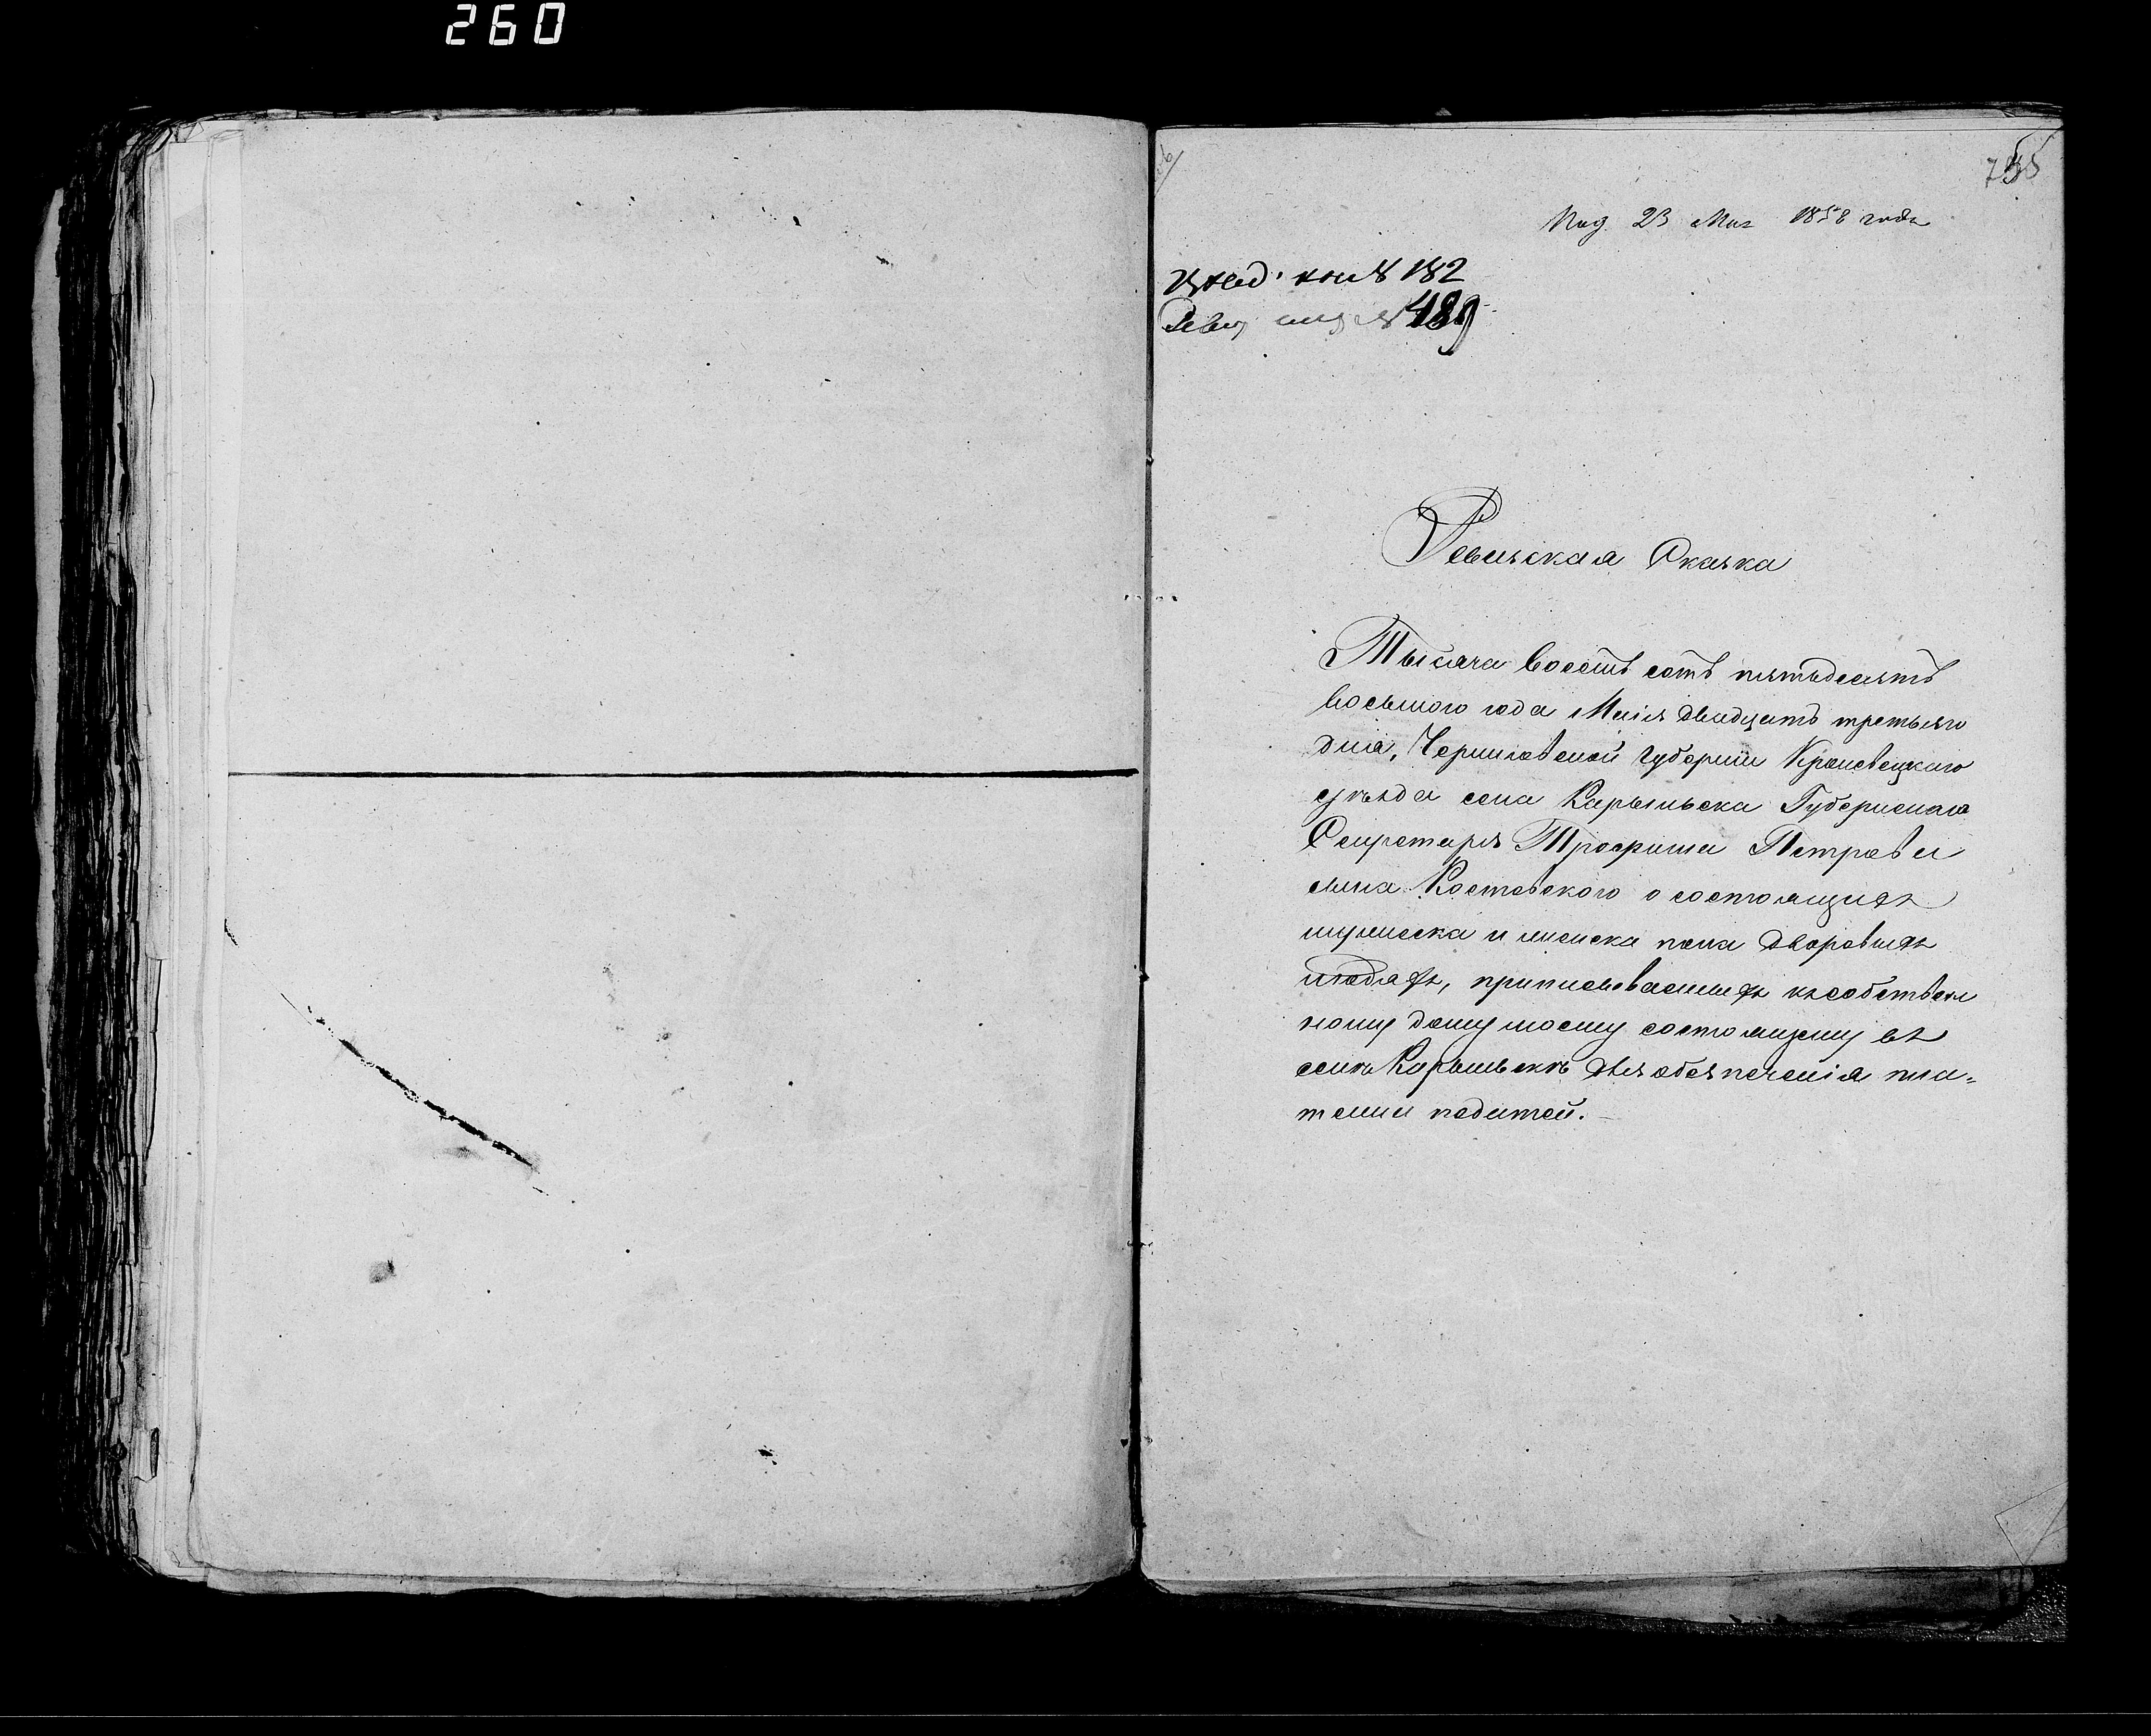 260
Под. 23 Мая 1858 года
Вход. кн. № 182
Реви. № 489
Ревизская Сказка
Тысяча восемь сотъ пятьдесятъ
восьмого года Маія двадцать третьяго
дня, Черниговской Губерніи Кролевецкаго
уѣзда села Карыльска Губернскаго
Секретаря Трофима Петрова
сына Костовского о состоящихъ
мужеска и женска пола дворовыхъ
людяхъ, приписоваемыхъ къ собствен
ному дому моему состоящему въ
селѣ Карыльскѣ для обезпеченія пла-
тежи податей.